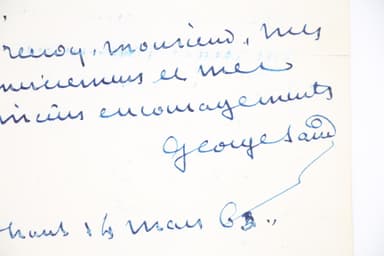 recevez, monsieur, mes
remerciemens et mes
sincères encouragements
George Sand
Nohant 14 mars 63..